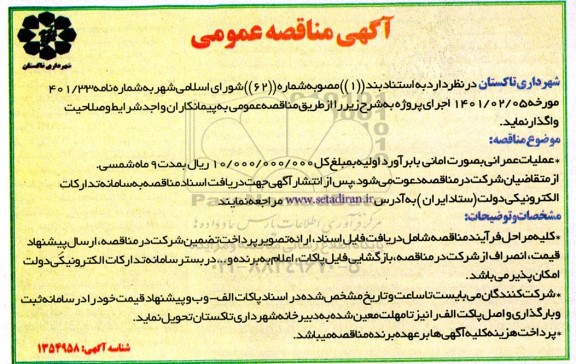 آگهی مناقصه عمومی
شهرداری تاکستان
شهرداری تاکستان در نظر دارد به استناد بند ((۱)) مصوبه شماره ((۶۲)) شورای اسلامی شهر به شماره نامه ۴۰۱/۳۳
مورخه ۱۴۰۱/۰۲/۰۵ اجرای پروژه به شرح زیر را از طریق مناقصه عمومی به پیمانکاران واجد شرایط و صلاحیت
واگذار نماید.
موضوع مناقصه:
*عملیات عمرانی بصورت امانی با برآورد اولیه به مبلغ کل ۱۰/۰۰۰/۰۰۰/۰۰۰ ریال بمدت ۹ ماه شمسی.
از متقاضیان شرکت در مناقصه دعوت می شود، پس از انتشار آگهی جهت دریافت اسناد مناقصه به سامانه تدارکات
الکترونیکی دولت (ستاد ایران) به آدرس www.setadiran.ir مراجعه نمایند
مشخصات و توضیحات:
*کلیه مراحل فرآیند مناقصه شامل دریافت فایل اسناد، ارائه تصویر پرداخت تضمین شرکت در مناقصه، ارسال پیشنهاد
قیمت، انصراف از شرکت در مناقصه، بازگشایی فایل پاکات، اعلام به برنده و... در بستر سامانه تدارکات الکترونیکی دولت
امکان پذیر می باشد.
*شرکت کنندگان می بایست تا ساعت و تاریخ مشخص شده در اسناد پاکات الف - ب و پیشنهاد قیمت خود را در سامانه ثبت
و بارگذاری و اصل پاکت الف را نیز تا مهلت معین شده به دبیرخانه شهرداری تاکستان تحویل نماید.
*پرداخت هزینه کلیه آگهی ها بر عهده برنده مناقصه میباشد.
شناسه آگهی: ۱۳۵۴۹۵۸